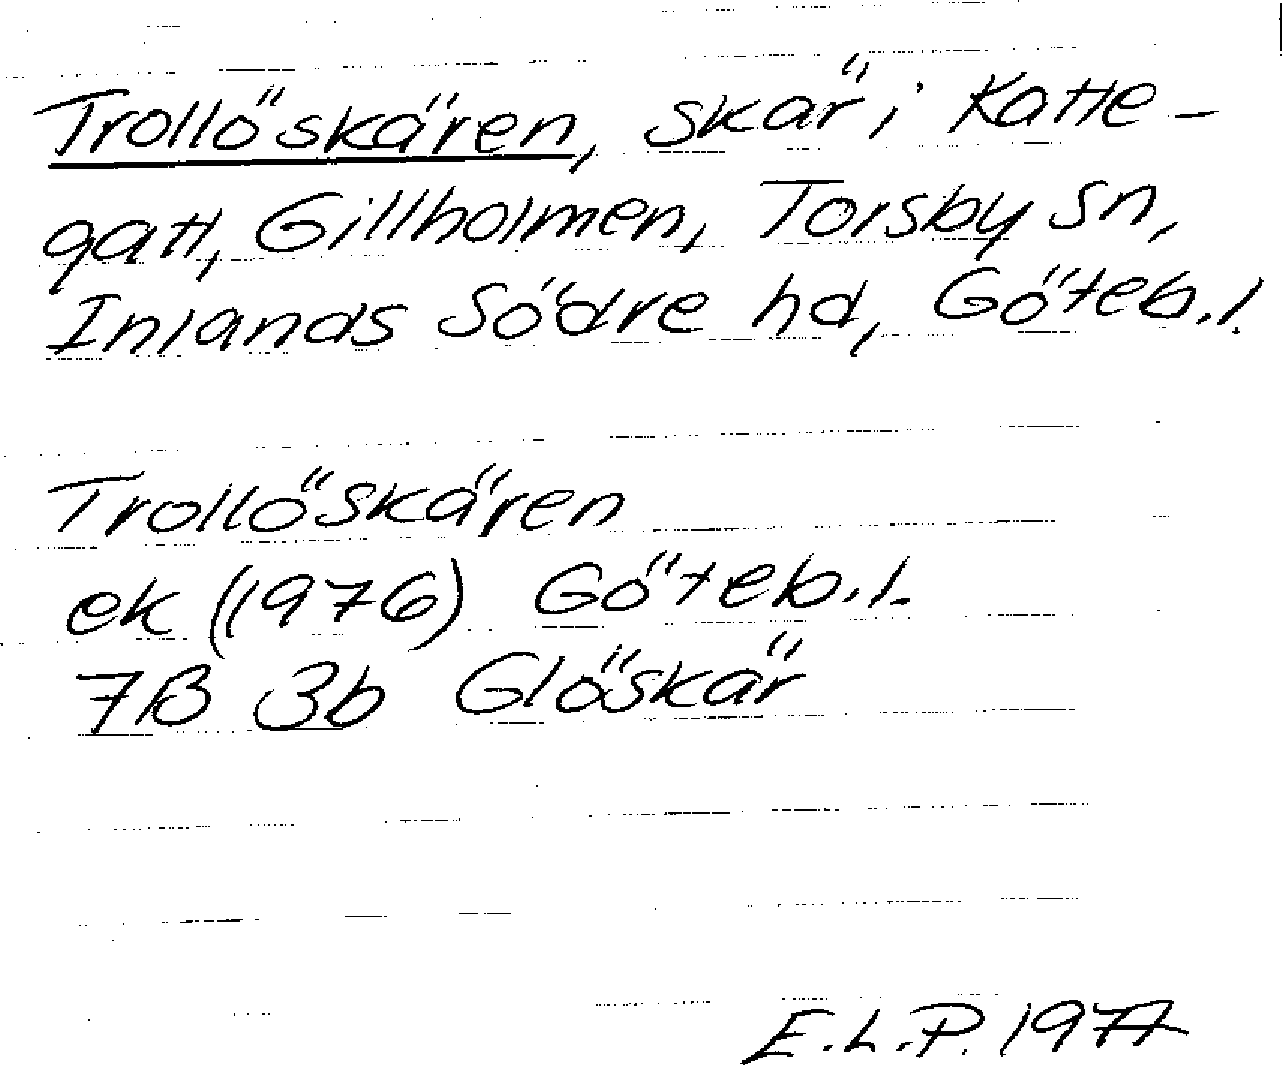 Trollöskären, skär i Katte-
gatt, Gillholmen, Torsby sn,
Inlands Södre hd, Göteb.l.
Trollöskären
ek (1976) Göteb.l.
7B 3b Glöskär
E.L.P. 1977